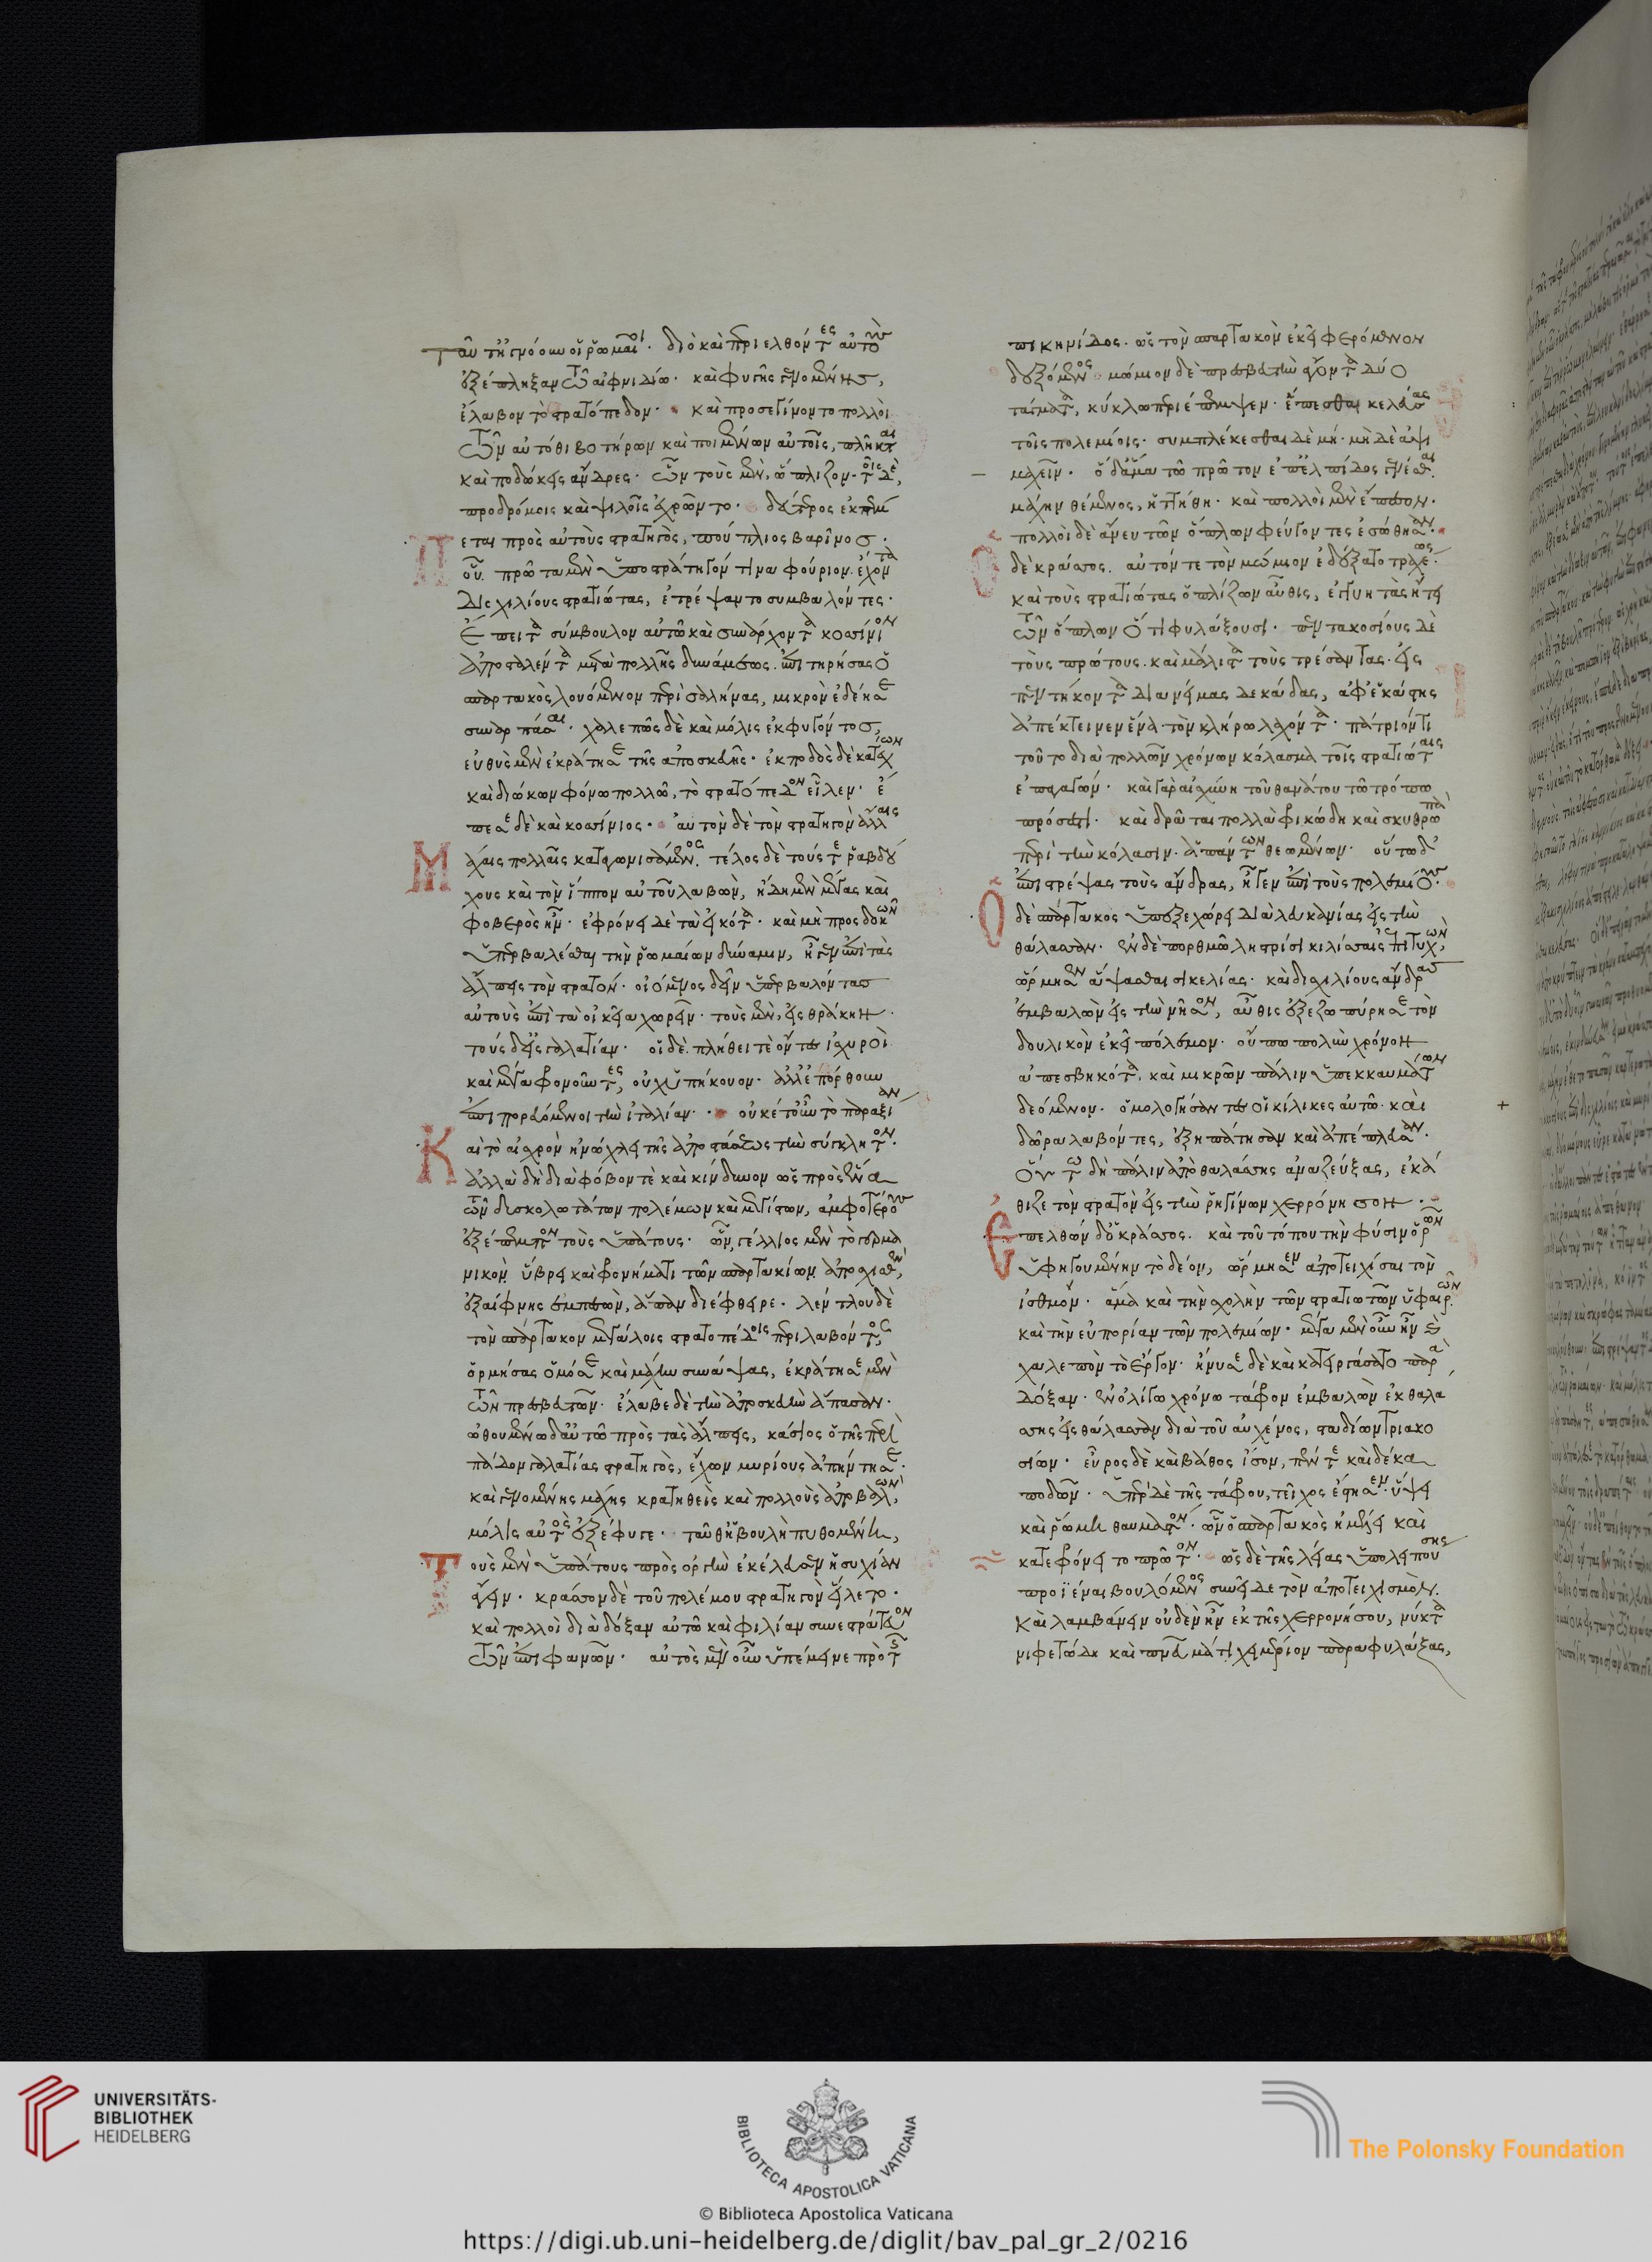 ταῦτ' ἠγνόουν οἱ ῥωμαῖοι. διὸ καὶ περιελθόντες αὐτοὺς
ἐξέπληξαν τῶ αἰφνιδίω. καὶ φυγῆς γενομένης,
ἔλαβον τὸ στρατόπεδον. καὶ προσεγίνοντο πολλοὶ
τῶν αὐτόθι βοτήρων καὶ ποιμένων αὐτοῖς, πλῆκται
καὶ ποδώκεις ἄνδρες. ὧν τοὺς μὲν, ὥπλιζον. τοῖς δὲ,
προδρόμοις καὶ ψιλοῖς ἐχρῶντο. δεύτερος ἐκπέμ
Πεται πρὸς αὐτοὺς στρατηγὸς, πούπλιος βαρῖνος.
οὗ. πρῶτα μὲν ὑποστράτηγόν τινα φούριον. ἔχοντα
δισχιλίους στρατιώτας, ἐτρέψαντο συμβαλόντες.
ἔπειτα σύμβουλον αὐτῶ καὶ συνάρχοντα κοσίνιον
ἀποσταλέντα μετὰ πολλῆς δυνάμεως. ἐπιτηρήσας ὁ
σπάρτακος λουόμενον περὶ σαλήνας, μικρὸν ἐδέησε
συναρπάσαι. χαλεπῶς δὲ καὶ μόλις ἐκφυγόντος,
εὐθὺς μὲν ἐκράτησε τῆς ἀποσκευῆς. ἐκ ποδὸς δὲ κατέχων
καὶ διώκων φόνω πολλῶ, τὸ στρατόπεδον εἷλεν. ἔ
πεσε δὲ καὶ κοσίνιος. αὐτὸν δὲ τὸν στρατηγὸν ἄλλαις
Μάχαις πολλαῖς καταγωνισάμενος. τέλος δὲ τούς τε ῥαβδού
χους καὶ τὸν ἵππον αὐτοῦ λαβὼν, ἤδη μὲν μέγας καὶ
φοβερὸς ἦν. ἐφρόνει δὲ τὰ εἰκότα. καὶ μὴ προσδοκῶν
ὑπερβαλέσθαι τὴν ῥωμαίων δύναμιν, ἦγεν ἐπὶ τὰς
ἄλπεις τὸν στρατόν. οἰόμενος δεῖν ὑπερβαλόντας
αὐτοὺς ἐπὶ τὰ οἰκεῖα χωρεῖν. τοὺς μὲν, εἰς θράκην.
τοὺς δ' εἰς γαλατίαν. οἱ δὲ. πλήθει τε ὄντες ἰσχυροὶ
καὶ μέγα φρονοῦντες, οὐχ ὑπήκουον. ἀλλ' ἐπόρθουν
ἐπιπορευόμενοι τὴν ἰταλίαν. οὐκέτ' οὖν τὸ παραξίαν
Καὶ τὸ αἰσχρὸν ἠνώχλει τῆς ἀποστάσεως τὴν σύγκλητον.
ἀλλὰ δὴ διὰ φόβον τὲ καὶ κίνδυνον ὡς πρὸς ἕνα
τῶν δυσκολωτάτων πολέμων καὶ μεγίστων, ἀμφοτέρους
ἐξέπεμπον τοὺς ὑπάτους. ὧν, γέλλιος μὲν τὸ γερμα
νικὸν ὕβρει καὶ φρονήματι τῶν σπαρτακίων ἀποσχισθὲν,
ἐξαίφνης ἐμπεσὼν, ἅπαν διέφθειρε. λέντλου δὲ
τὸν σπάρτακον μεγάλοις στρατοπέδοις περιλαβόντος,
ὁρμήσας ὁμόσε καὶ μάχην συνάψας, ἐκράτησε μὲν
τῶν πρεσβευτῶν. ἔλαβε δὲ τὴν ἀποσκευὴν ἅπασαν.
ὠθουμένω δ' αὐτῶ πρὸς τὰς ἄλπεις, κάσσιος ὁ τῆς περὶ
πάδον γαλατίας στρατηγὸς, ἔχων μυρίους ἀπήντησε.
καὶ γενομένης μάχης κρατηθεὶς καὶ πολλοὺς ἀποβαλὼν,
μόλις αὐτὸς ἐξέφυγε. ταῦθ' ἡ βουλὴ πυθομένη,
Τοὺς μὲν ὑπάτους πρὸς ὀργὴν ἐκέλευσεν ἡσυχίαν
ἄγειν. κράσσον δὲ τοῦ πολέμου στρατηγὸν εἵλετο.
καὶ πολλοὶ διὰ δόξαν αὐτῶ καὶ φιλίαν συνεστράτευον
τῶν ἐπιφανῶν. αὐτὸς μὲν οὖν ὑπέμεινε πρὸ τῆς
πικηνίδος. ὡς τὸν σπάρτακον ἐκεῖ φερόμενον
δεξόμενος. μώμιον δὲ πρεσβευτὴν ἄγοντα δύο
τάγματα, κύκλω περιέπεμψεν. ἕπεσθαι κελεύσας
τοῖς πολεμίοις. συμπλέκεσθαι δὲ μή. μὴ δὲ ἁψι
μαχεῖν. ὁ δ' ἅμα τῶ πρῶτον ἐπ' ἐλπίδος γενέσθαι
μάχην θέμενος, ἡττήθη. καὶ πολλοὶ μὲν ἔπεσον.
πολλοὶ δὲ ἄνευ τῶν ὅπλων φεύγοντες ἐσώθησαν.
Ὁ δὲ κράσσος. αὐτόν τε τὸν μώμιον ἐδέξατο τραχέως.
καὶ τοὺς στρατιώτας ὁπλίζων αὖθις, ἐγγυητὰς ᾔτει
τῶν ὅπλων ὅτι φυλάξουσι. πεντακοσίους δὲ
τοὺς πρώτους. καὶ μάλιστα τοὺς τρέσαντας. εἰς
πεντήκοντα διανείμας δεκάδας, ἀφ' ἑκάστης
ἀπέκτεινεν ἕνα. τὸν κλήρω λαχόντα. πάτριόν τι
τοῦτο διὰ πολλῶν χρόνων κόλασμα τοῖς στρατιώταις
ἐπαγαγών. καὶ γὰρ αἰσχύνη τοῦ θανάτου τῶ τρόπω
πρόσεστι. καὶ δρᾶται πολλὰ φρικώδη καὶ σκυθρωπὰ
περὶ τὴν κόλασιν. ἁπάντων θεωμένων. οὕτω δ'
ἐπιστρέψας τοὺς ἄνδρας, ἦγεν ἐπὶ τοὺς πολεμίους.
Ὁ δὲ σπάρτακος ὑπεξεχώρει διὰ λευκανίας εἰς τὴν
θάλασσαν. ἐν δὲ πορθμῶ ληστρίσι κιλίσσαις ἐπιτυχὼν,
ὥρμησεν ἅψασθαι σικελίας. καὶ δισχιλίους ἄνδρας
ἐμβαλὼν εἰς τὴν νῆσον, αὖθις ἐξεζωπύρησε τὸν
δουλικὸν ἐκεῖ πόλεμον. οὔπω πολὺν χρόνον
ἀπεσβηκότα, καὶ μικρῶν πάλιν ὑπεκκαυμάτων
δεόμενον. ὁμολογήσαντες οἱ κίλικες αὐτῶ. καὶ
δῶρα λαβόντες, ἐξηπάτησαν καὶ ἀπέπλευσαν.
οὕτω δὴ πάλιν ἀπὸ θαλάσσης ἀναζεύξας, ἐκά
θιζε τὸν στρατὸν εἰς τὴν ῥηγίνων χερρόνησον.
Ἐπελθὼν δ' ὁ κράσσος. καὶ τοῦ τόπου τὴν φύσιν ὁρῶν
ὑφηγουμένην τὸ δέον, ὥρμησεν ἀποτειχίσαι τὸν
ἰσθμόν. ἅμα καὶ τὴν σχολὴν τῶν στρατιωτῶν ὑφαιρῶν.
καὶ τὴν εὐπορίαν τῶν πολεμίων. μέγα μὲν οὖν ἦν καὶ
χαλεπὸν τὸ ἔργον. ἤνυσε δὲ καὶ κατειργάσατο παρὰ
δόξαν. ἐν ὀλίγω χρόνω τάφρον ἐμβαλὼν ἐκ θαλά
σσης εἰς θάλασσαν διὰ τοῦ αὐχένος, σταδίων τριακο
σίων. εὖρος δὲ καὶ βάθος ἴσον, πέντε καὶ δέκα
ποδῶν. ὑπὲρ δὲ τῆς τάφρου, τεῖχος ἔστησεν. ὕψει
καὶ ῥώμη θαυμαστόν. ὧν ὁ σπάρτακος ἠμέλει καὶ
κατεφρόνει τὸ πρῶτον. ὡς δὲ τῆς λείας ὑπολειπούσης
προϊέναι βουλόμενος συνεῖδε τὸν ἀποτειχισμὸν.
καὶ λαμβάνειν οὐδὲν ἦν ἐκ τῆς χερρονήσου, νύκτα
νιφετώδη καὶ πνεῦμά τι χειμέριον παραφυλάξας,
UNIVERSITÄTS-
BIBLIOTHEK
HEIDELBERG
BIBLIOTECA APOSTOLICA VATICANA
The Polonsky Foundation
© Biblioteca Apostolica Vaticana
https://digi.ub.uni-heidelberg.de/diglit/bav_pal_gr_2/0216